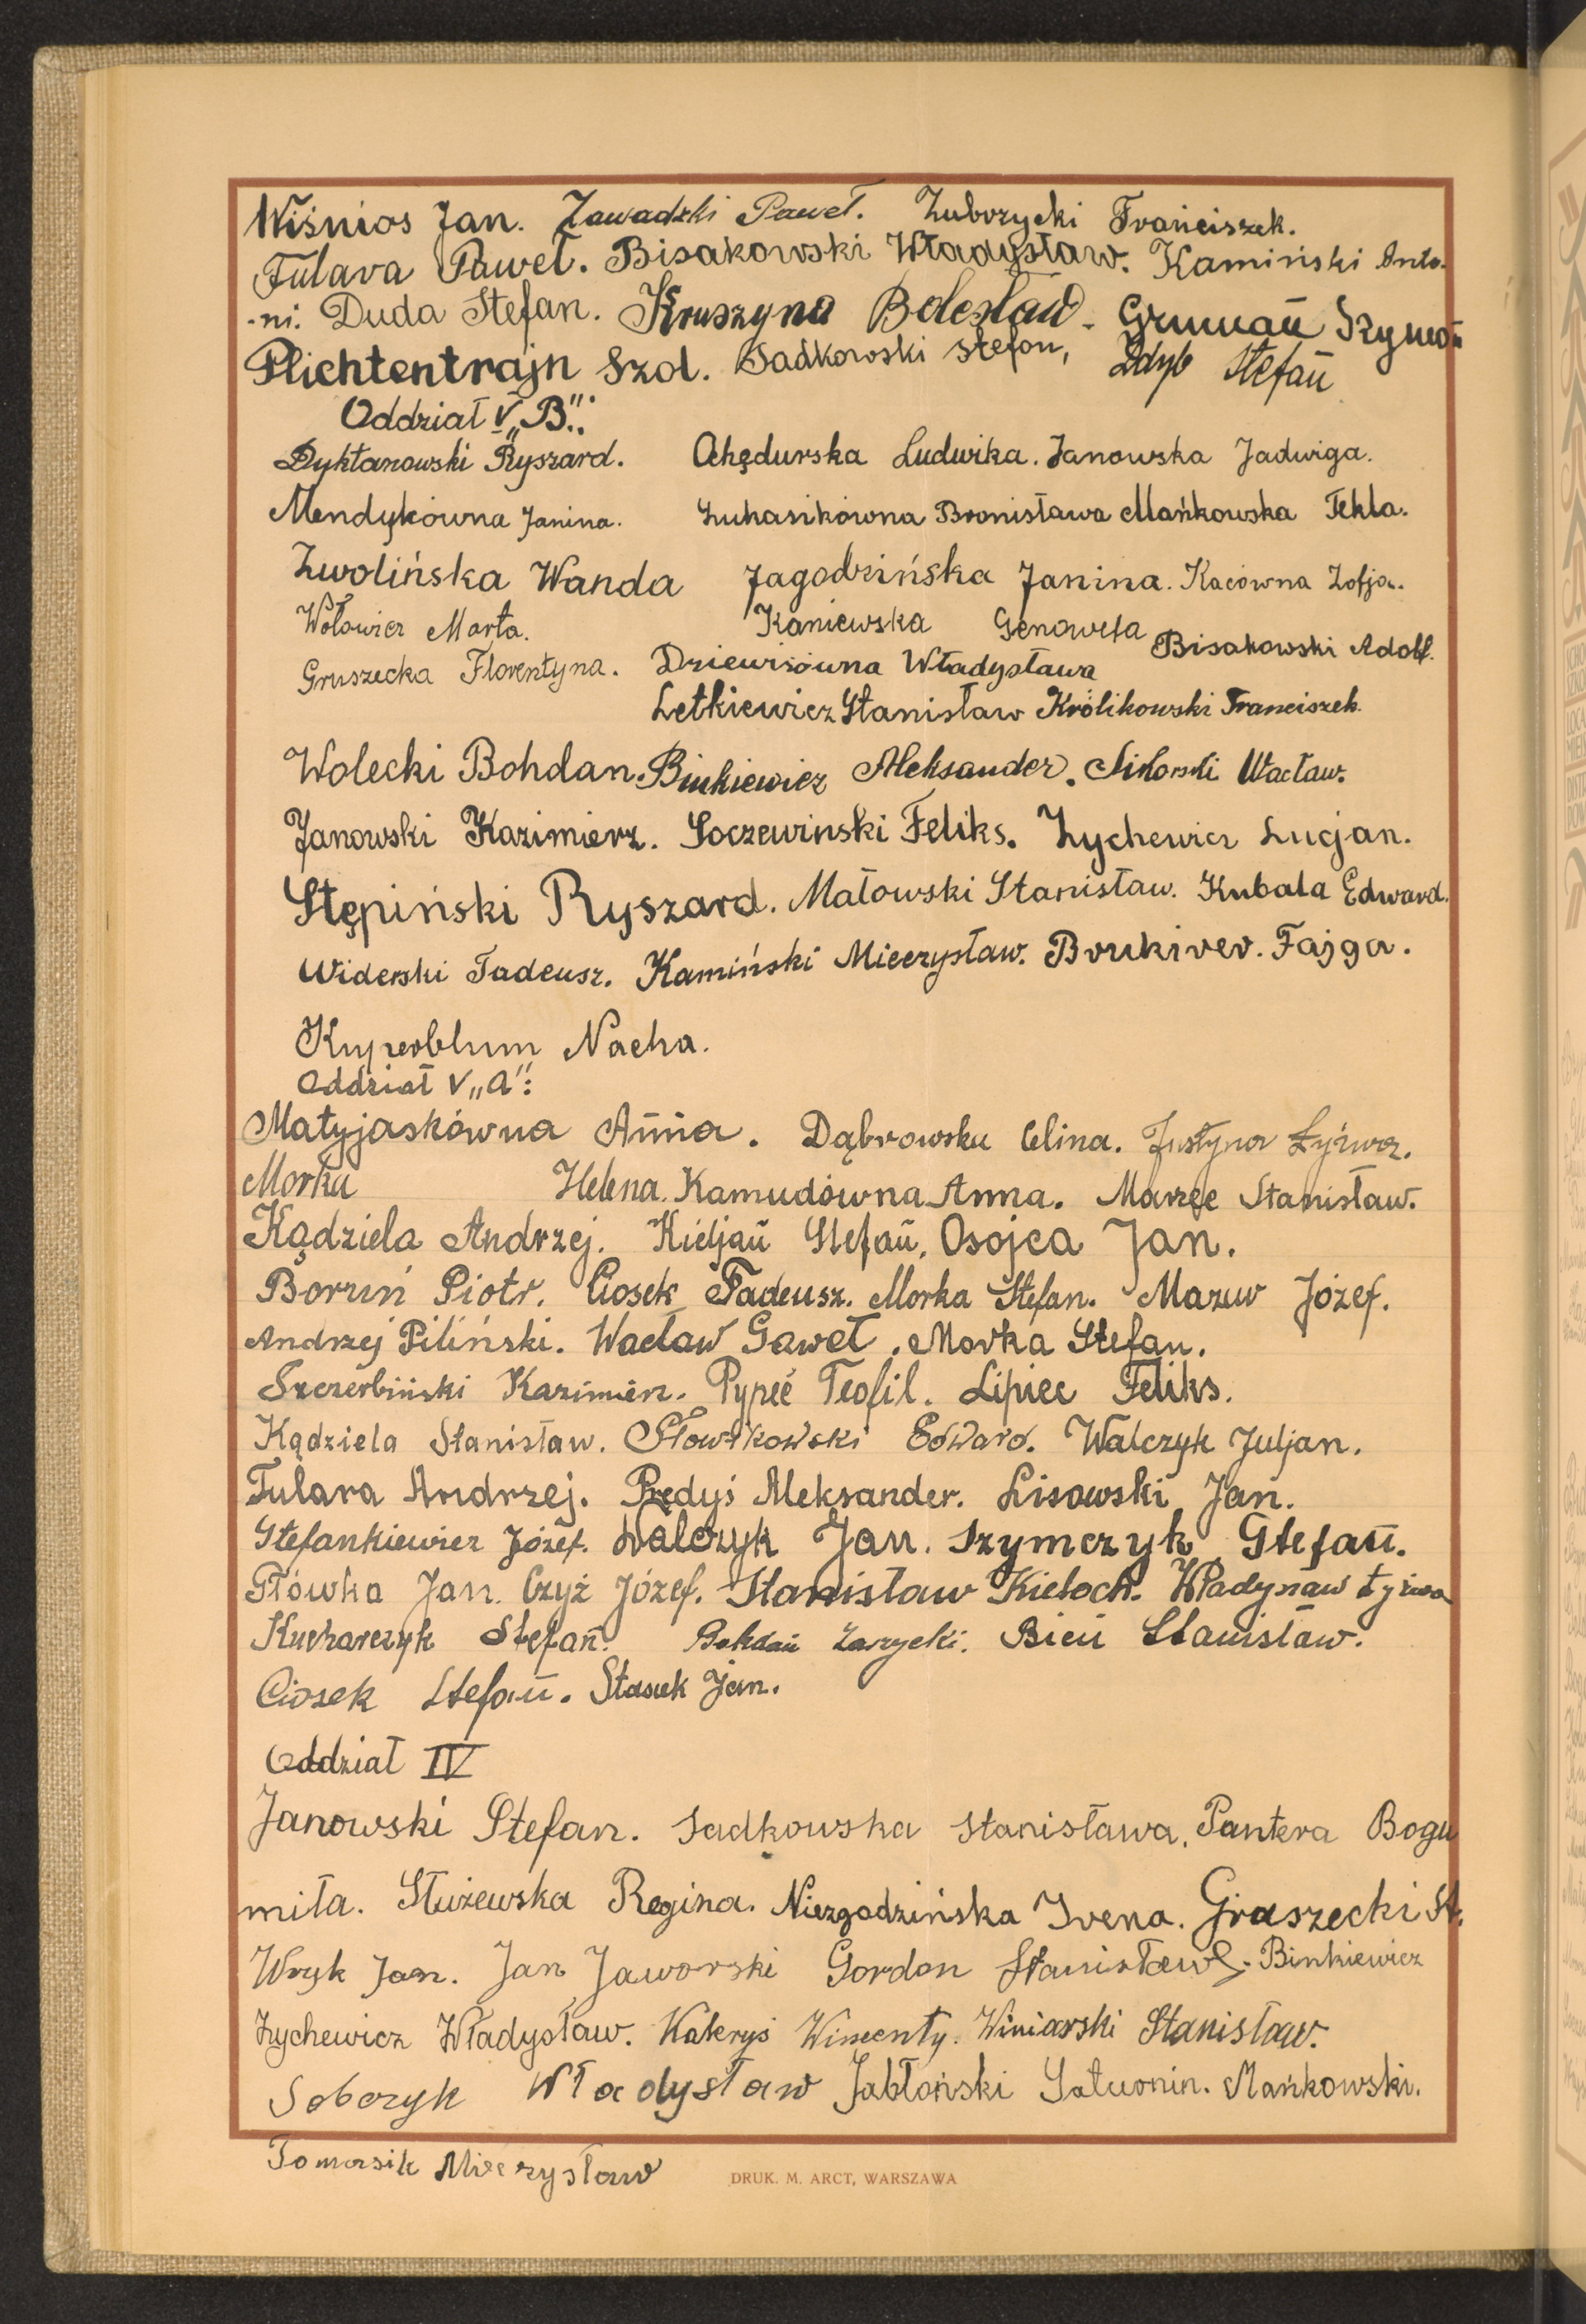 Wiśnios Jan. Zawadzki Paweł. Zuborzycki Franciszek.
Fulara Paweł. Bisakowski Władysław. Kamiński Anto-
-ni. Duda Stefan. Kruszyna Bolesław. Szymon
Plichtentrajn Szol. Sadkowski Stefan, Zdyb Stefan
Oddział V „B":
Dyktanowski Ryszard. Ochędurska Ludwika. Janowska Jadwiga.
Mendykówna Janina. Łukasikówna Bronisława Mańkowska Tekla.
Zwolińska Wanda Jagodzińska Janina. Kacówna Zofja.
Wołowicz Marta. Kaniewska Genowefa Bisakowski Adolf.
Gruszecka Florentyna. Dziewisówna Władysława
Letkiewicz Stanisław Królikowski Franciszek.
Wolecki Bohdan. Binkiewicz Aleksander. Sikorski Wacław.
Janowski Kazimierz. Soczewinski Feliks. Zychewicz Lucjan.
Stępiński Ryszard. Małowski Stanisław. Kubala Edward.
Widerski Tadeusz. Kamiński Mieczysław. Brukirer. Fajga.
Kuperblum Nacha.
Oddział V „A":
Matyjaskówna Anna. Dąbrowska Celina. Justyna Łyżwa.
Morka Helena. Kamudówna Anna. Marzec Stanisław.
Kądziela Andrzej. Kieljan Stefan. Osojca Jan.
Boruń Piotr. Ciosek Tadeusz. Morka Stefan. Mazur Józef.
Andrzej Piliński. Wacław Gaweł. Morka Stefan.
Szczerbiński Kazimierz. Pypeć Teofil. Lipiec Feliks.
Kądziela Stanisław. Słowikowski Edward. Walczyk Juljan.
Fulara Andrzej. Prędyś Aleksander. Lisowski Jan.
Stefankiewicz Józef. Walczyk Jan. Szymczyk Stefan.
Główka Jan. Czyż Józef. Stanisław Kieloch. Władysław Łyżwa
Kucharczyk Stefan. Bohdan Zarzycki. Bień Stanisław.
Ciosek Stefan. Stasiek Jan.
Oddział IV
Janowski Stefan. Sadkowska Stanisława. Pantera Bogu
miła. Służewska Regina. Niezgodzińska Irena. Gruszecki St.
Wryk Jan. Jan Jaworski Gordon Stanisław. Binkiewicz
Zychewicz Władysław. Kateryś Wincenty. Winiarski Stanisław.
Sobczyk Władysław Jabłoński Saturnin. Mańkowski.
Tomasik Mieczysław
DRUK. M. ARCT, WARSZAWA